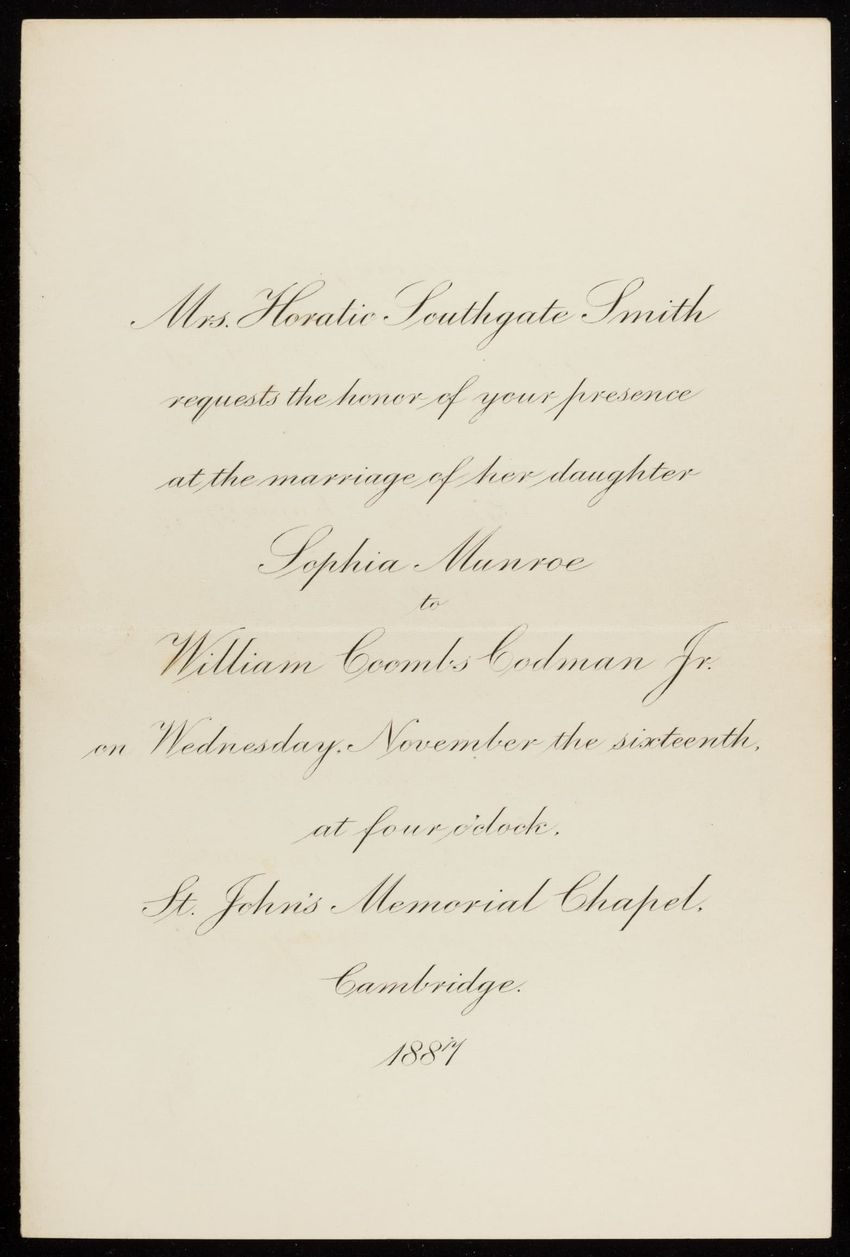 Mrs. Horatio Southgate Smith
requests the honor of your presence
at the marriage of her daughter
Sophia Munroe
to
William Coombs Codman Jr.
on Wednesday, November the sixteenth,
at four o'clock,
St. John's Memorial Chapel,
Cambridge.
1887